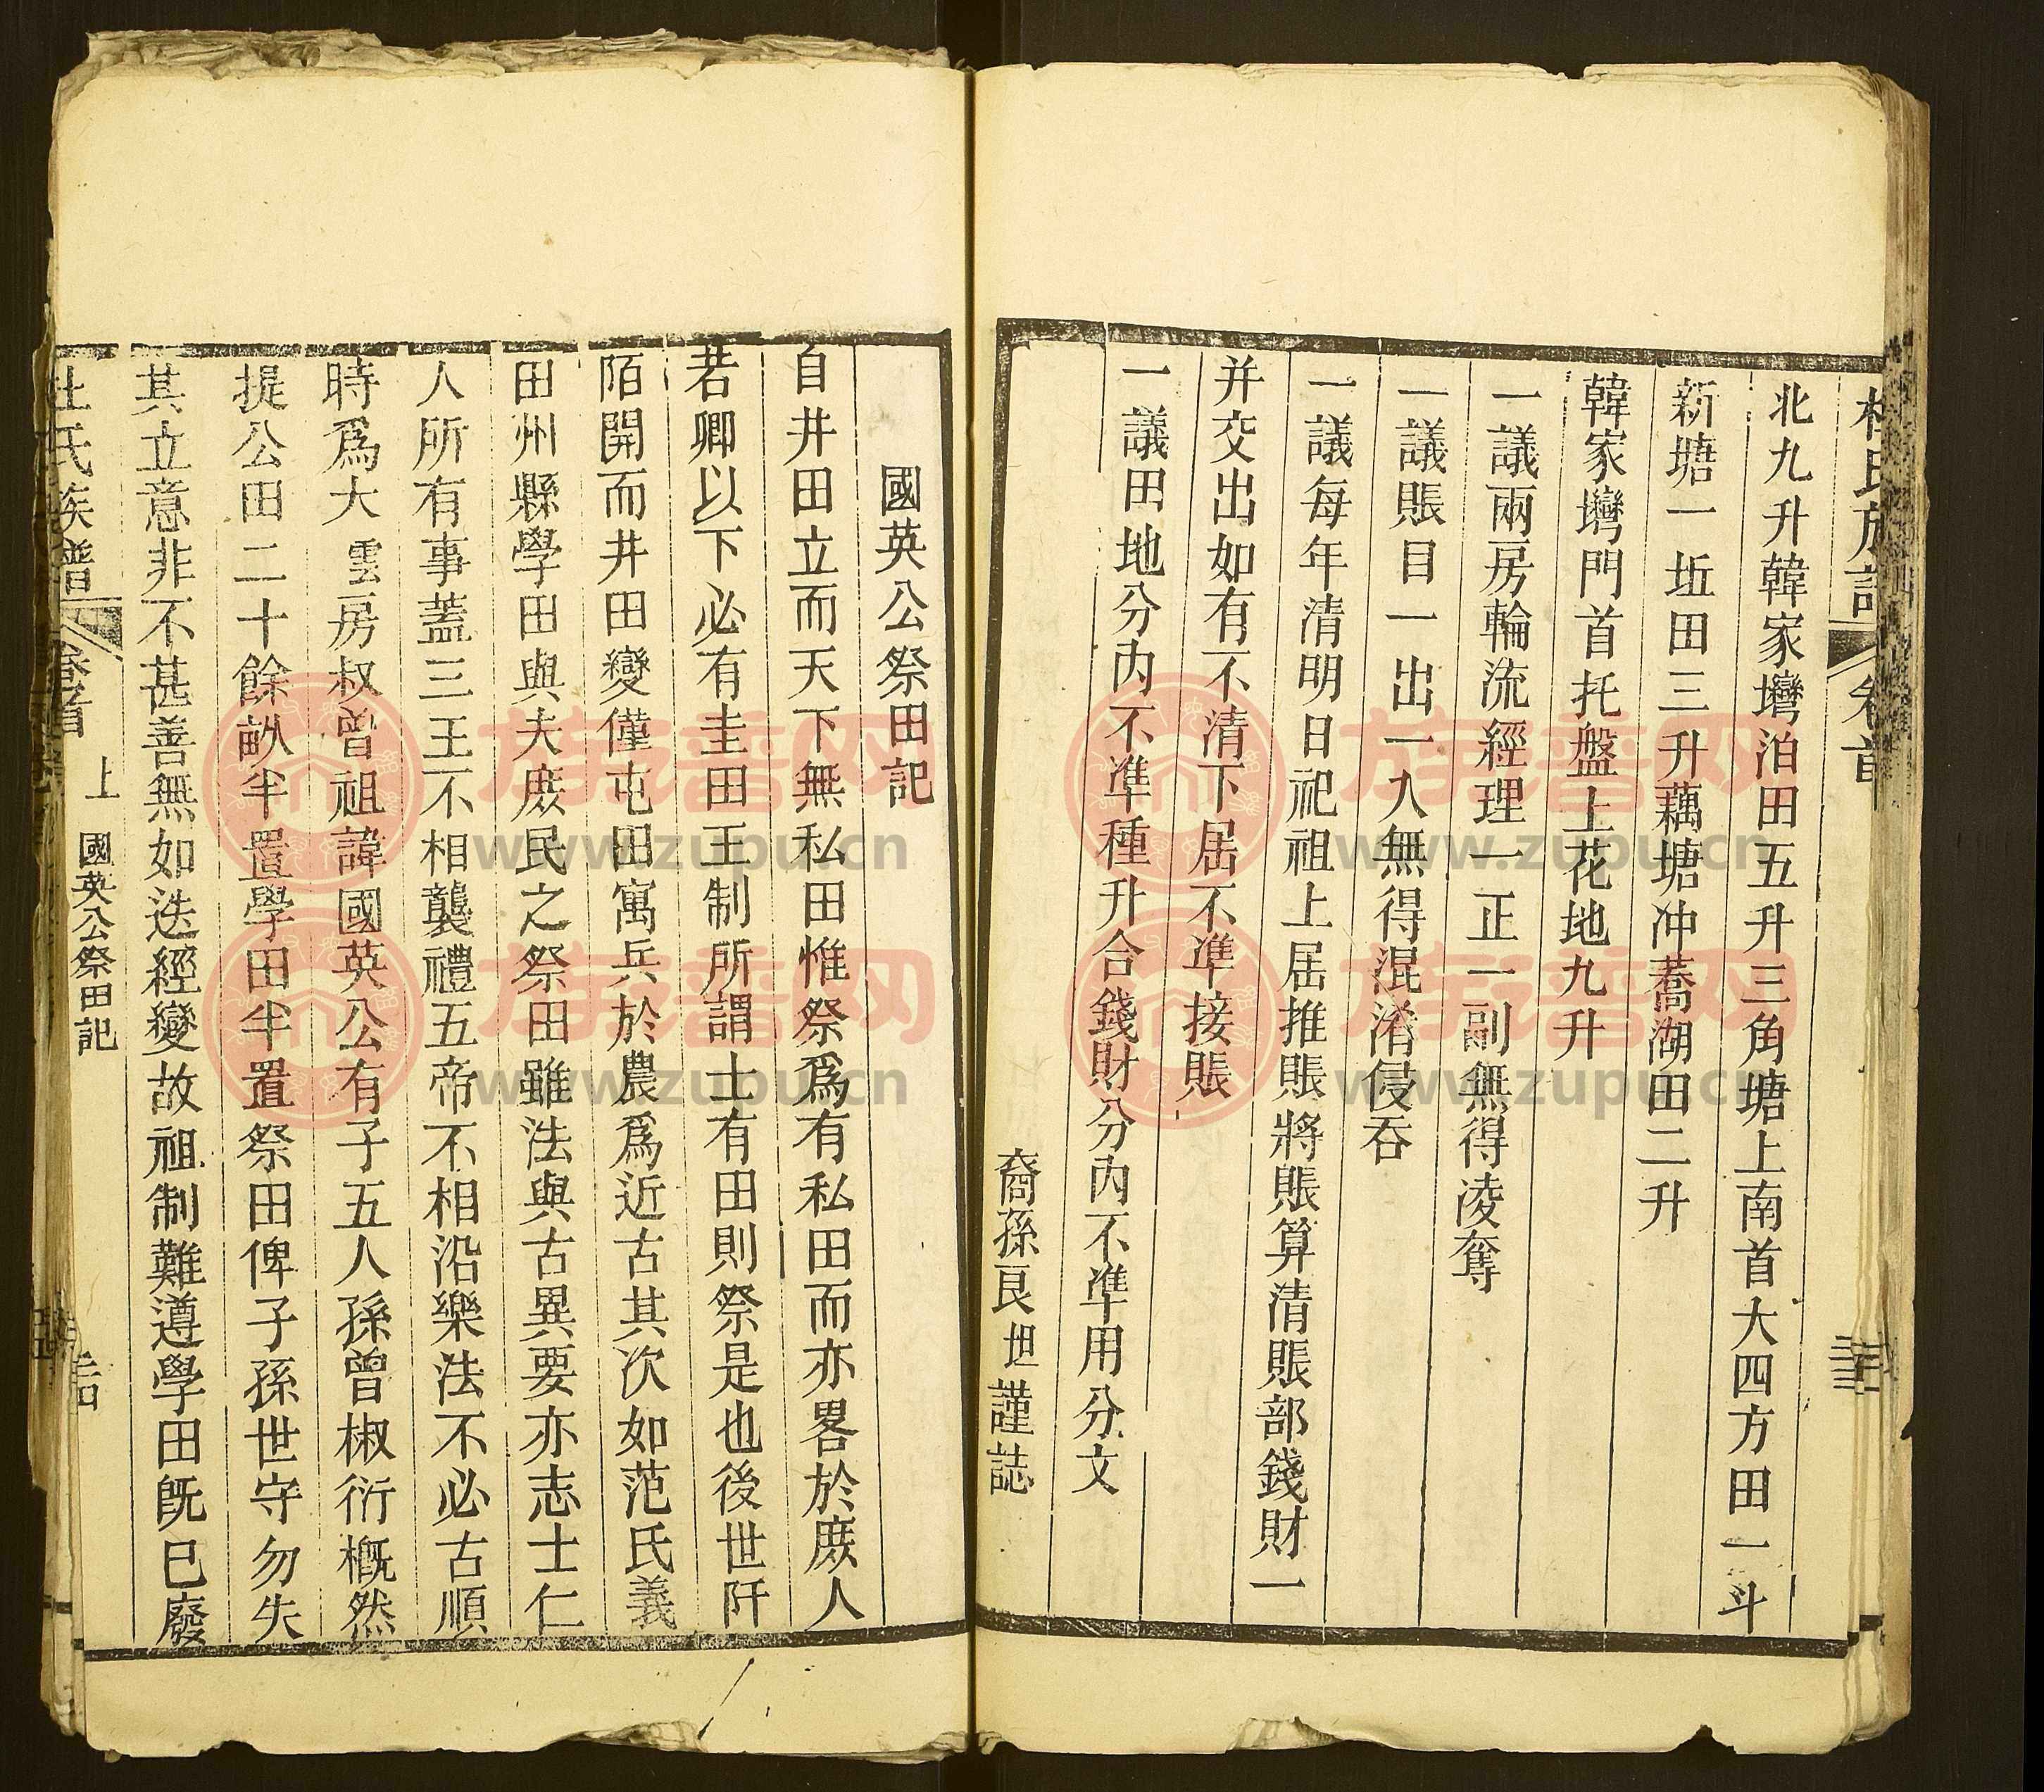 杜氏族譜 卷首
北九升韓家塆泊田五升三角塘上南首大四方田一斗
新塘一坵田三升藕塘冲蕎湖田二升
韓家塆門首托盤上花地九升
一議兩房輪流經理一正一副無得凌奪
一議賬目一出一入無得混淆侵吞
一議每年清明日祀祖上屆推賬將賬算清賬部錢財一
并交出如有不清下屆不凖接賬
一議田地分內不凖種升合錢財分內不凖用分文
裔孫良坦謹誌
國英公祭田記
自井田立而天下無私田惟祭爲有私田而亦畧於庶人
若卿以下必有圭田王制所謂士有田則祭是也後世阡
陌開而井田變僅屯田寓兵於農爲近古其次如范氏義
田州縣學田與夫庶民之祭田雖法與古異要亦志士仁
人所有事蓋三王不相襲禮五帝不相沿樂法不必古順
時爲大雲房叔曾祖諱國英公有子五人孫曾椒衍概然
提公田二十餘畝半置學田半置祭田俾子孫世守勿失
其立意非不甚善無如迭經變故祖制難遵學田旣已廢
杜氏族譜 卷首 上 國英公祭田記
族譜网
www.zupu.cn
族譜网
www.zupu.cn
族譜网
www.zupu.cn
族譜网
www.zupu.cn